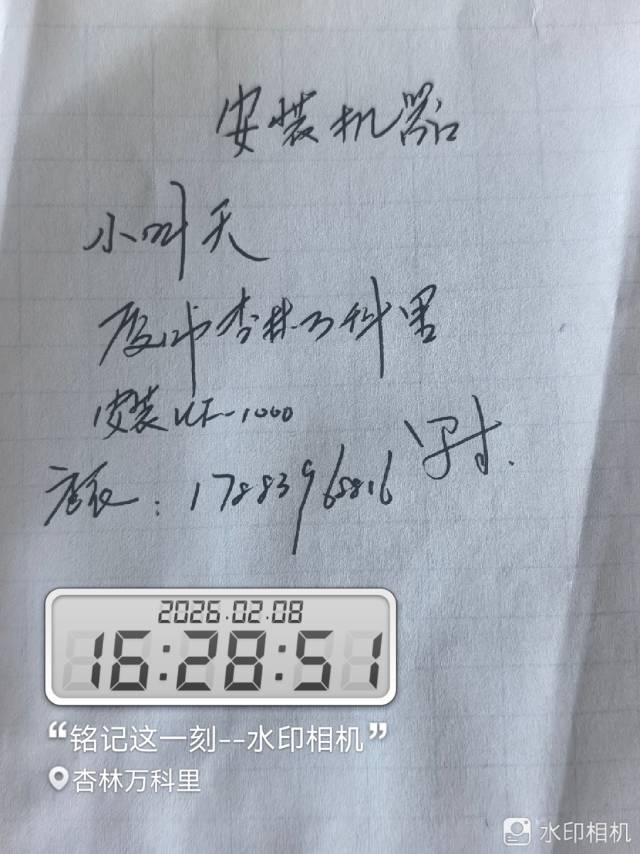 安装机器
小叫天
厦门杏林万科里
安装UF-1000
店长：17883968816
2026.02.08
16:28:51
“铭记这一刻--水印相机”
杏林万科里
水印相机